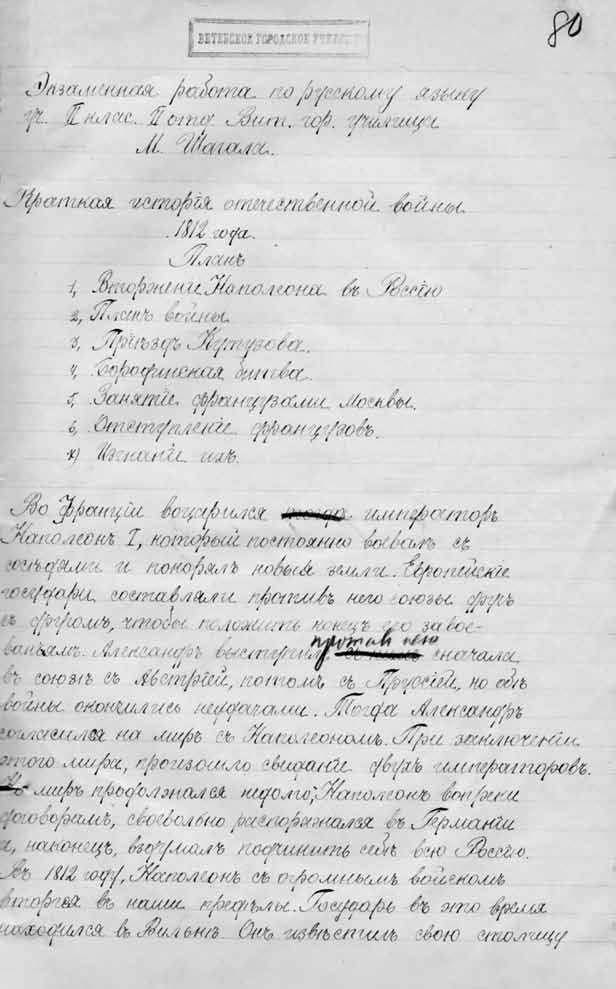 80
ВИТЕБСКОЕ ГОРОДСКОЕ
Экзаменная работа по русскому языку
уч. II клас. II отд. Вит. гор. училища
М. Шагала.
Краткая исторія отечественной войны
1812 года.
Планъ
1, Вторженіе Наполеона въ Россію
2, Планъ войны
3, Пріѣздъ Кутузова.
4, Бородинская битва.
5, Занятіе французами Москвы.
6, Отступленіе французовъ.
7) Изгнаніе ихъ.
Во Франціи воцарился тогда императоръ
Наполеонъ I, который постоянно воевалъ съ
сосѣдями и покорялъ новыя земли. Европейскіе
государи составляли противъ него союзы другъ
съ другомъ, чтобы положить конецъ его завое-
ваніямъ. Александръ выступилъ противъ него сначала
въ союзѣ съ Австріей, потомъ съ Пруссіей, но обѣ
войны окончились неудачами. Тогда Александръ
согласился на миръ съ Наполеономъ. При заключеніи
этого мира, произошло свиданіе двухъ императоровъ.
Но миръ продолжался недолго, Наполеонъ вопреки
договорамъ, своевольно распоряжался въ Германіи
и, наконецъ, вздумалъ подчинить себѣ всю Россію.
Въ 1812 году, Наполеонъ съ огромнымъ войскомъ
вторгся въ наши предѣлы. Государь въ это время
находился въ Вильнѣ. Онъ извѣстилъ свою столицу